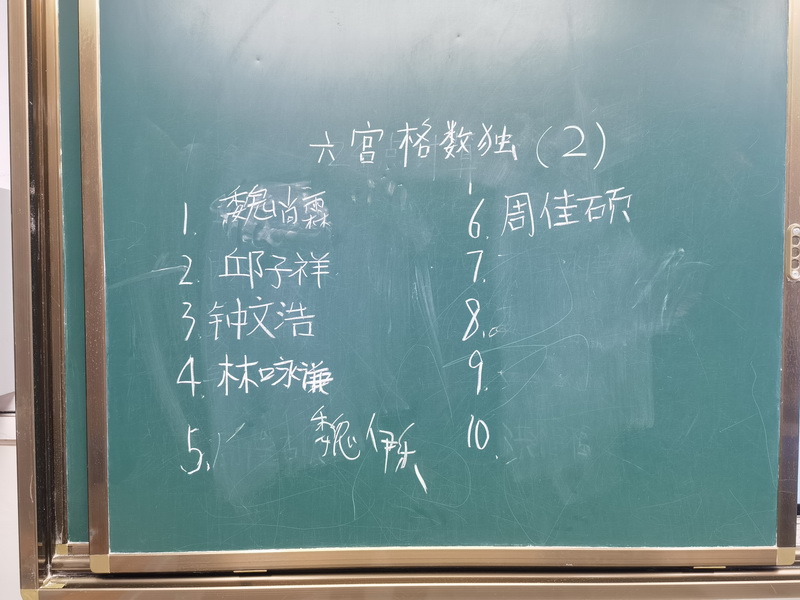 六宫格数独(2)
1. 魏尚霖
2. 邱子祥
3. 钟文浩
4. 林咏谦
5. 魏伊乐
6. 周佳硕
7.
8.
9.
10.